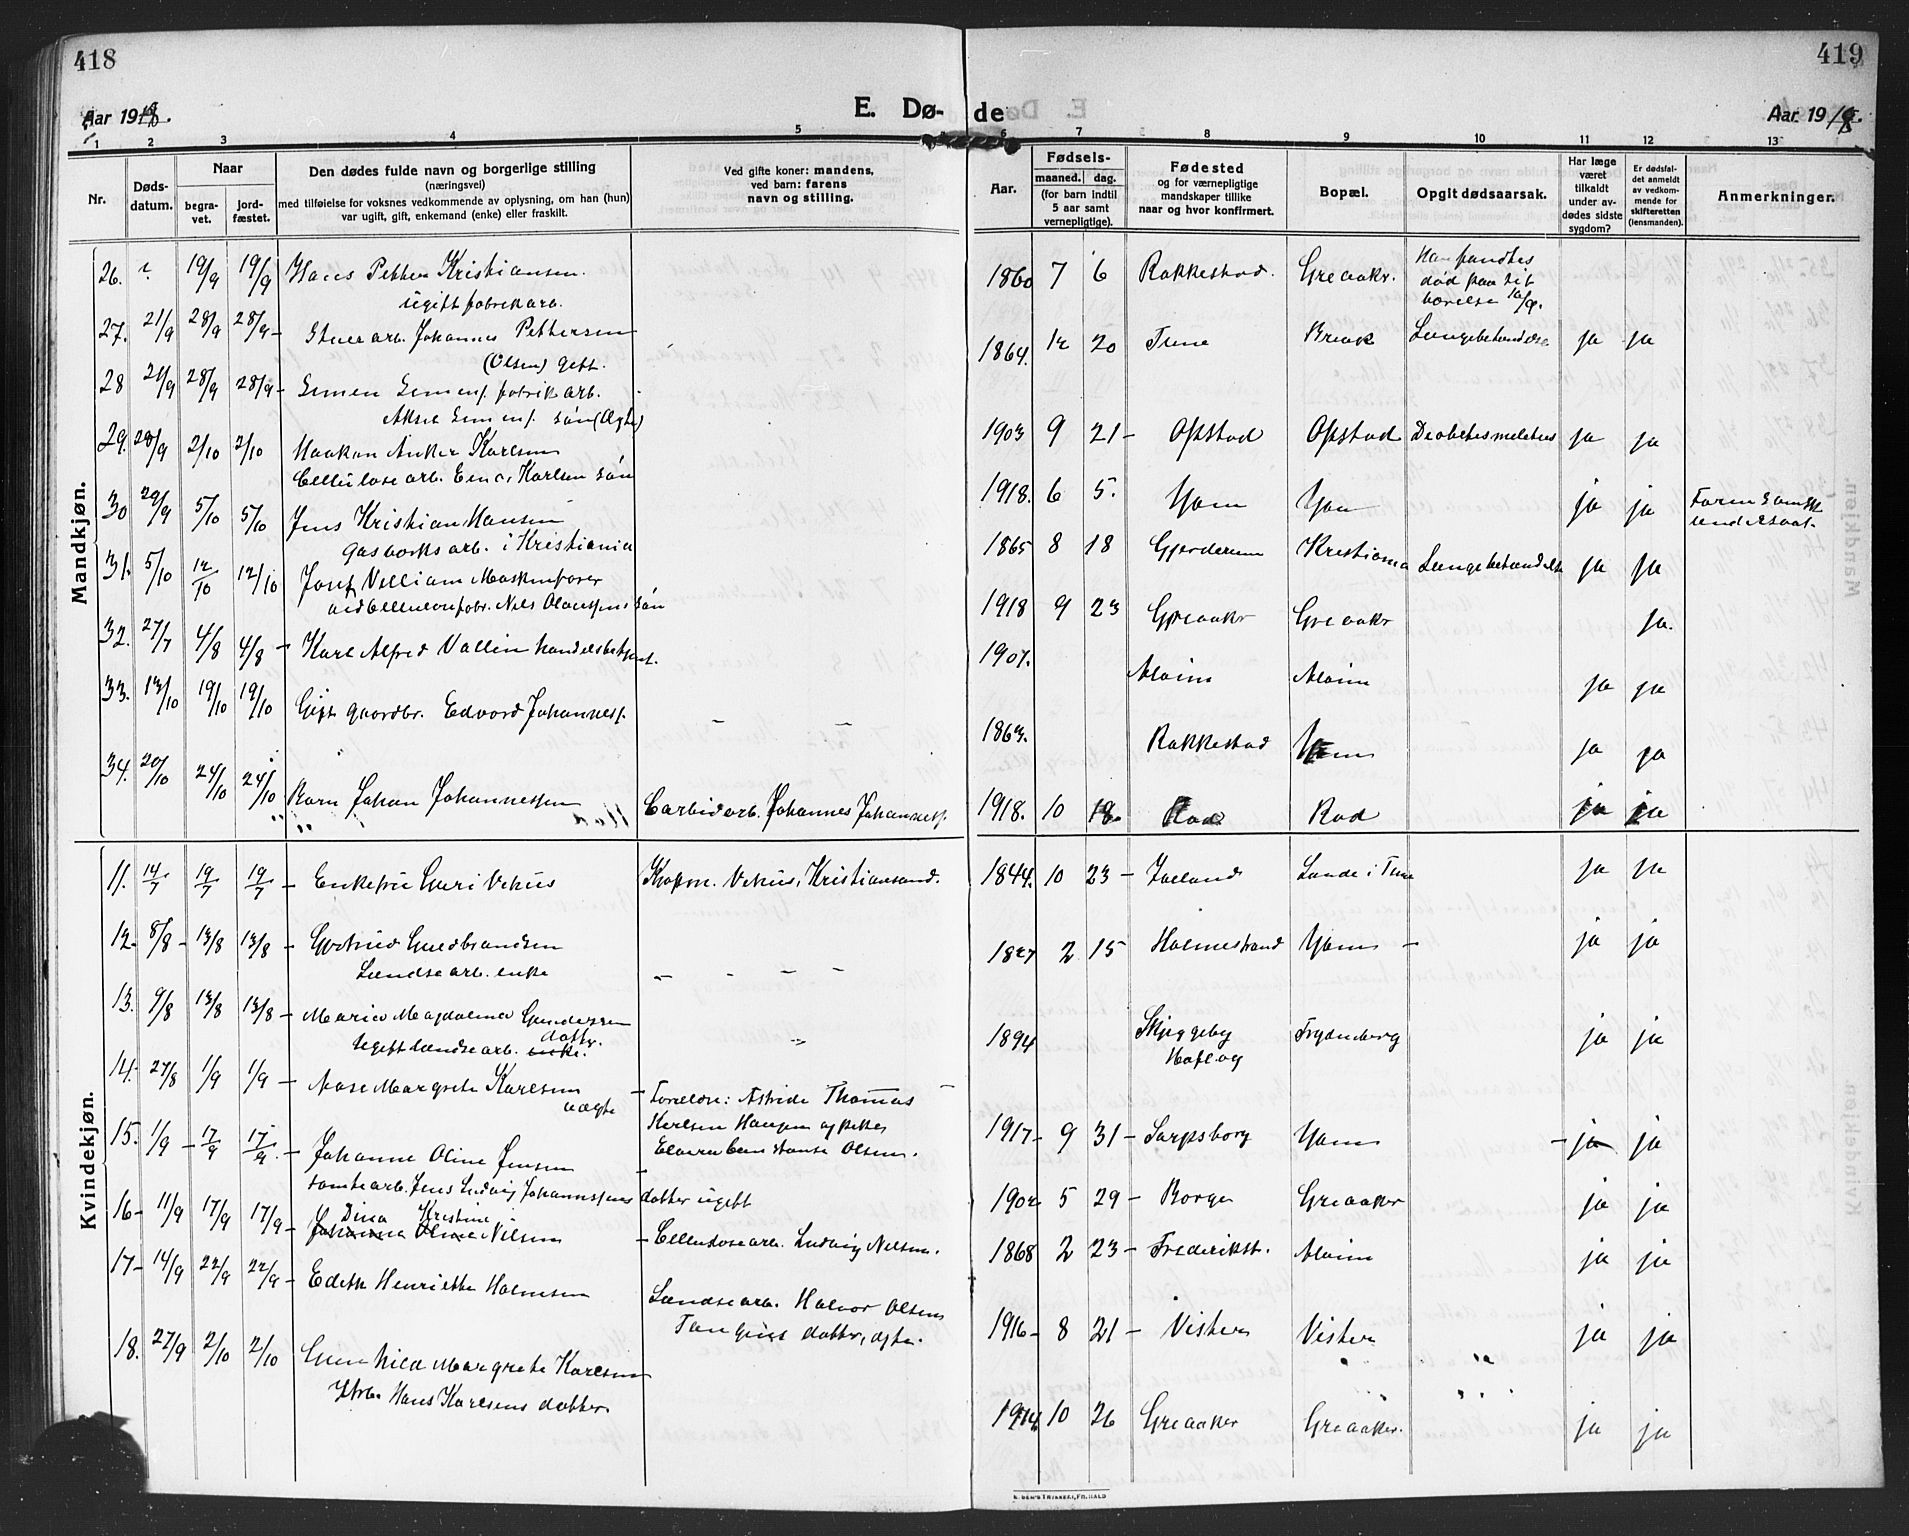 418
Aar 1918.
E. Dø-
1 2 3 4 5
Nr.
Døds-
datum.
Naar
begra-
vet.
jord-
fæstet.
Den dødes fulde navn og borgerlige stilling
(næringsvei)
med tilføielse for voksnes vedkommende av oplysning, om han (hun)
var ugift, gift, enkemand (enke) eller fraskilt.
Ved gifte koner: mandens,
ved barn: farens
navn og stilling.
Mandkjøn.
26. 19/9 19/9 Hans Petter Kristiansen.
ugift fabrikarb.
27. 21/9 28/9 28/9 - Stuearb. Johannes Pettersen
(Olsen) gift.
28 21/9 28/9 28/9 - Simen Simens. fabrikarb.
Aksel Simens. søn (Ægte)
29. 28/9 2/10 2/10 Haakon Anker Karlsen
Cellulosearb. Karlsen søn
30 29/9 5/10 5/10 Jens Kristian Hansen
Gasverksarb. i Kristiania
31. 5/10 12/10 12/10 William Maskinfører
søn
32. 27/7 4/8 4/8 - Karl Alfred Vallin handelsbetjent.
33. 13/10 19/10 19/10 Gift gaardbr. Edvard Johanness.
34. 20/10 24/10 24/10 Barn Johan Johannessen Carbidarb. Johannes Johanness.
Kvindekjøn.
11. 14/7 19/7 19/7 - Enkefru Guri Vehus Kjøpm. Vehus, Kristiansand.
12. 8/8 - 13/8 13/8 - Gertrud Guldbrandsen
Lændsearb. enke
13. 9/8 13/8 13/8 - Maria Magdalena Gundersen
ugift lændsearb. enke. datter.
14. 27/8 1/9 1/9 - Aase Margrete Karlsen
uægte
- Foreldre: Astride Thomas
Karlsen Haugen og
Elvira Constanse Olsen.
15. 1/9 - 17/9 17/9 - Johanne Oline Jensen
tomtearb. Jens Ludvig Johannessens datter ugift
16 - 11/9 17/9 17/9 - Johanna Oline Nilsen
Dina Kristine
- Cellulosearb. Ludvig Nilsen.
17 - 14/9 22/9 22/9 - Edith Henriette Halvorsen
Lændsearb. Halvor Olsen
datter, ægte.
18. 27/9 2/10 2/10 Gunhild Margrete Karlsen
Hans Karlsens datter.
419
de
Aar 1918.
6 7 8 9 10 11 12 13
Aar.
Fødsels-
maaned. dag.
(for barn indtil
5 aar samt
vernepligtige).
Fødested
og for værnepligtige
mandskaper tillike
naar og hvor konfirmert.
Bopæl.
Opgit dødsaarsak.
Har læge
været
tilkaldt
under av-
dødes sidste
sygdom?
Er dødsfal-
det anmeldt
av vedkom-
mende for
skifteretten
(lensmanden).
Anmerkninger.
1860 7 6 Rakkestad. Greaaker. Han fandtes
død paa sit
værelse 16/9.
1864. 12 20 Tune Brevik Lungebetændelse ja ja
1903 9 21 - Opstad Opstad Diabetes melitus ja ja
1918. 6 5. Yven Yven ja ja
1865 8 18 Gjerderum Kristiania Lungebetændelse ja ja
1918 9 23 Greaaker Greaaker ja.
1907. Alvim Alvim ja ja
1863. Rakkestad Yven ja ja
1918. 10 18. Rød Rød ja ja
1844. 10 23 - Jælland Lande i Tune ja ja
1827 2 15 Holmestrand Yven - ja ja
1894 Skjeggeby
Hafslog
Frydenberg ja ja
1917 - 9 31 - Sarpsborg Yven - ja ja
1902 5 29 - Borge Greaaker ja ja
1868 2 23 - Frederikst. Alvim ja ja
1916 - 8 21 - Vister Vister ja ja
1914. 10 26 Greaaker Greaaker. ja ja